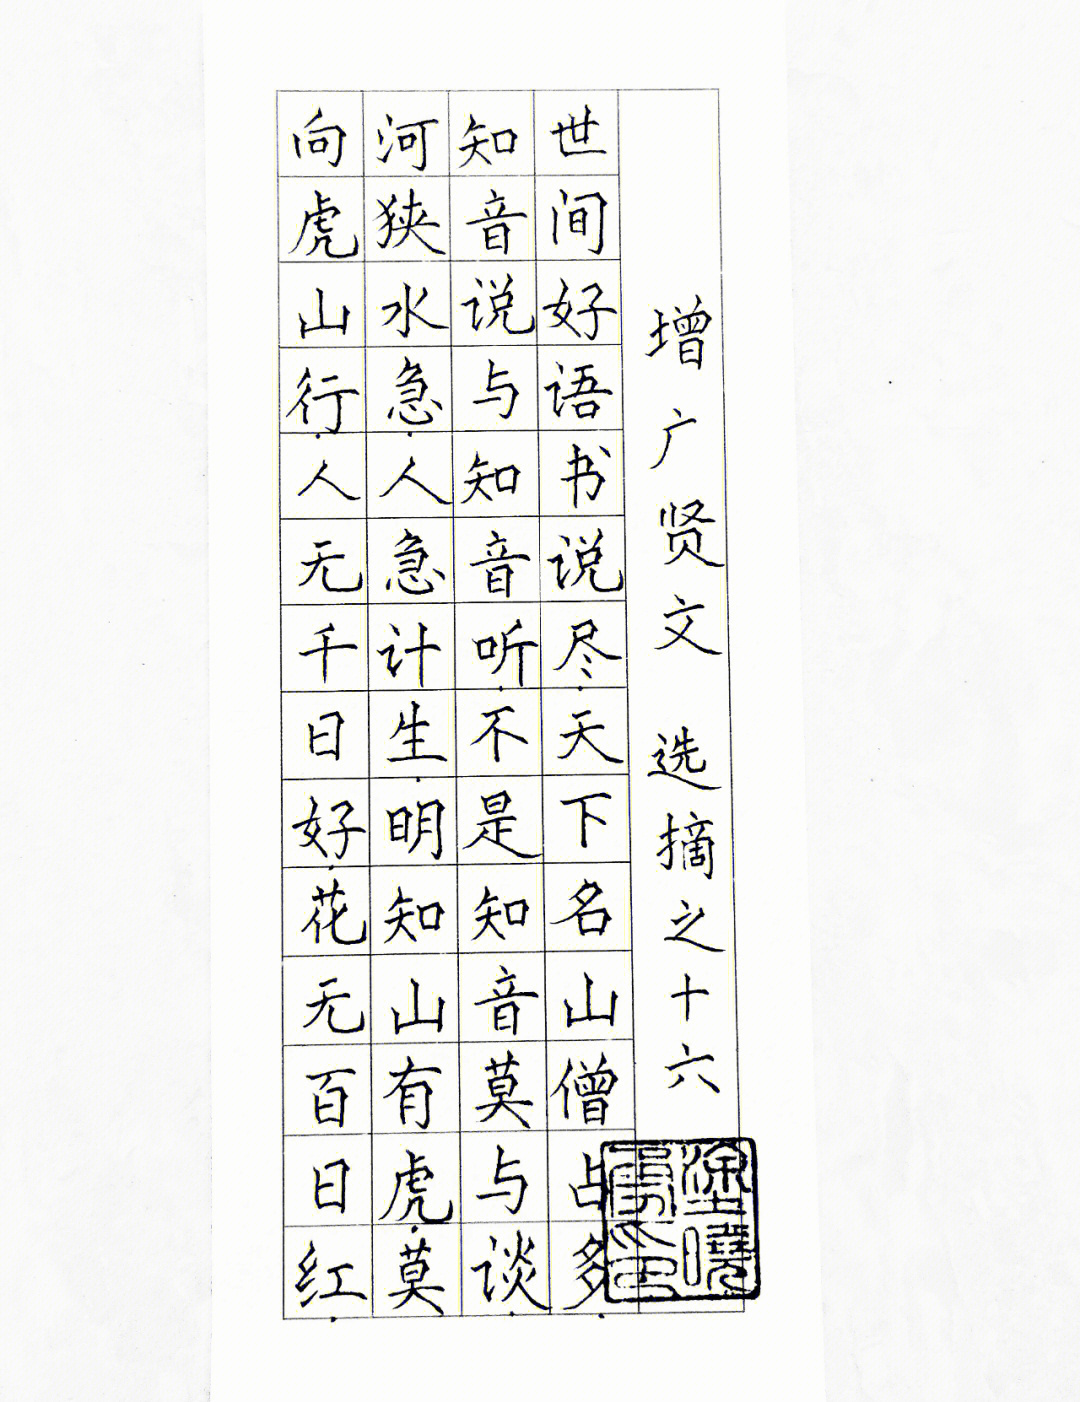 增广贤文 选摘之十六
世间好语书说尽.天下名山僧占多.
知音说与知音听.不是知音莫与谈.
河狭水急.人急计生.明知山有虎.莫
向虎山行.人无千日好.花无百日红.